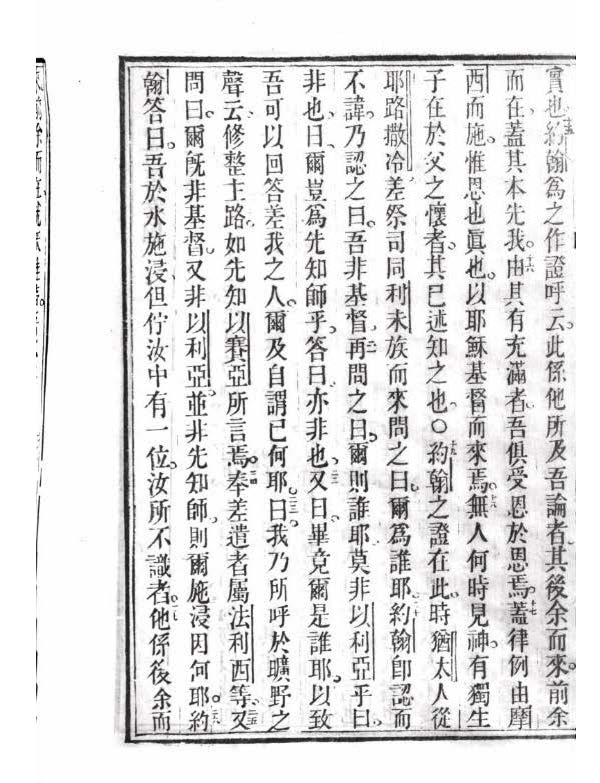 實也約翰為之作證呼云此係他所及吾論者其後余而來前余
而在蓋其本先我由其有充滿者吾俱受恩於恩焉蓋律例由摩
西而施惟恩也眞也以耶穌基督而來焉無人何時見神有獨生
子在於父之懷者其已述知之也〇約翰之證在此時猶太人從
耶路撒冷差祭司同利未族而來問之曰爾為誰耶約翰即認而
不諱乃認之曰吾非基督再問之曰爾則誰耶莫非以利亞乎曰
非也曰爾豈為先知師乎答曰亦非也又曰畢竟爾是誰耶以致
吾可以回答差我之人爾及自謂已何耶曰我乃所呼於曠野之
聲云修整主路如先知以賽亞所言焉奉差遣者屬法利西等又
問曰爾旣非基督又非以利亞並非先知師則爾施浸因何耶約
翰答曰吾於水施浸但佇汝中有一位汝所不識者他係後余而